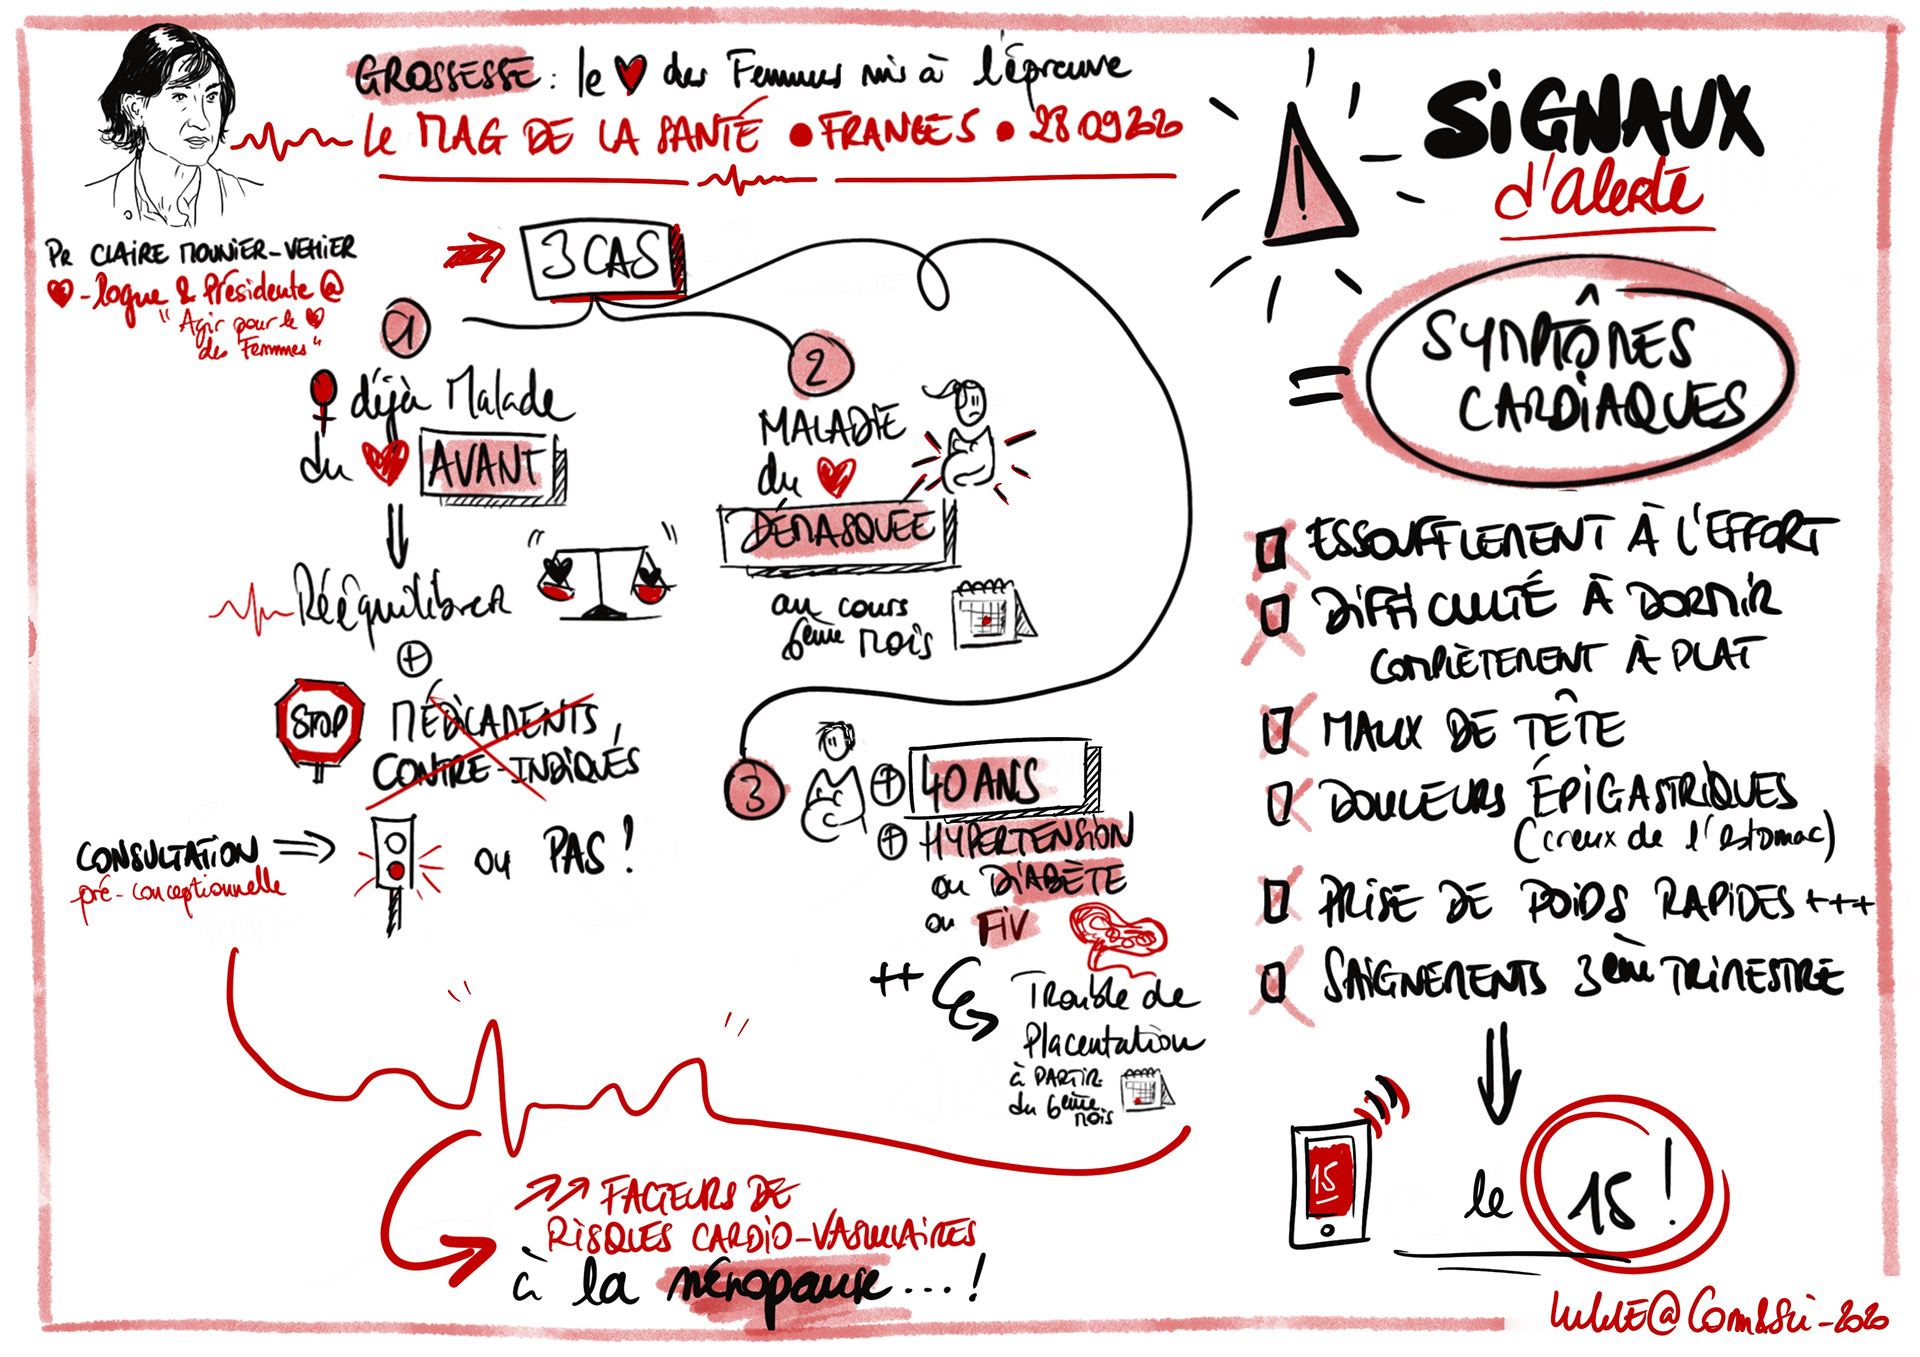 GROSSESSE : le ♥ des Femmes mis à l'épreuve
LE MAG DE LA SANTÉ • FRANCE 5 • 28 09 2020
PR CLAIRE MOUNIER-VEHIER
♥-logue & Présidente @
"Agir pour le ♥
des Femmes"
3 CAS
1
♀ déjà Malade
du ♥ AVANT
Rééquilibrer
+
STOP
MÉDICAMENTS
CONTRE-INDIQUÉS
CONSULTATION
pré-conceptionnelle
ou PAS !
2
MALADIE
du ♥
DÉMASQUÉE
au cours
6ème MOIS
3
+ 40 ANS
+ HYPERTENSION
ou DIABÈTE
ou FIV
++
Trouble de
Placentation
à PARTIR
du 6ème
MOIS
↗↗ FACTEURS DE
RISQUES CARDIO-VASCULAIRES
à la ménopause...!
SIGNAUX
d'alerte
!
=
SYMPTÔMES
CARDIAQUES
ESSOUFFLEMENT À L'EFFORT
DIFFICULTÉ À DORMIR
COMPLÈTEMENT À PLAT
MAUX DE TÊTE
DOULEURS ÉPIGASTRIQUES
(creux de l'estomac)
PRISE DE POIDS RAPIDES +++
SAIGNEMENTS 3ème TRIMESTRE
15
le 15 !
@Com&Sci-2020